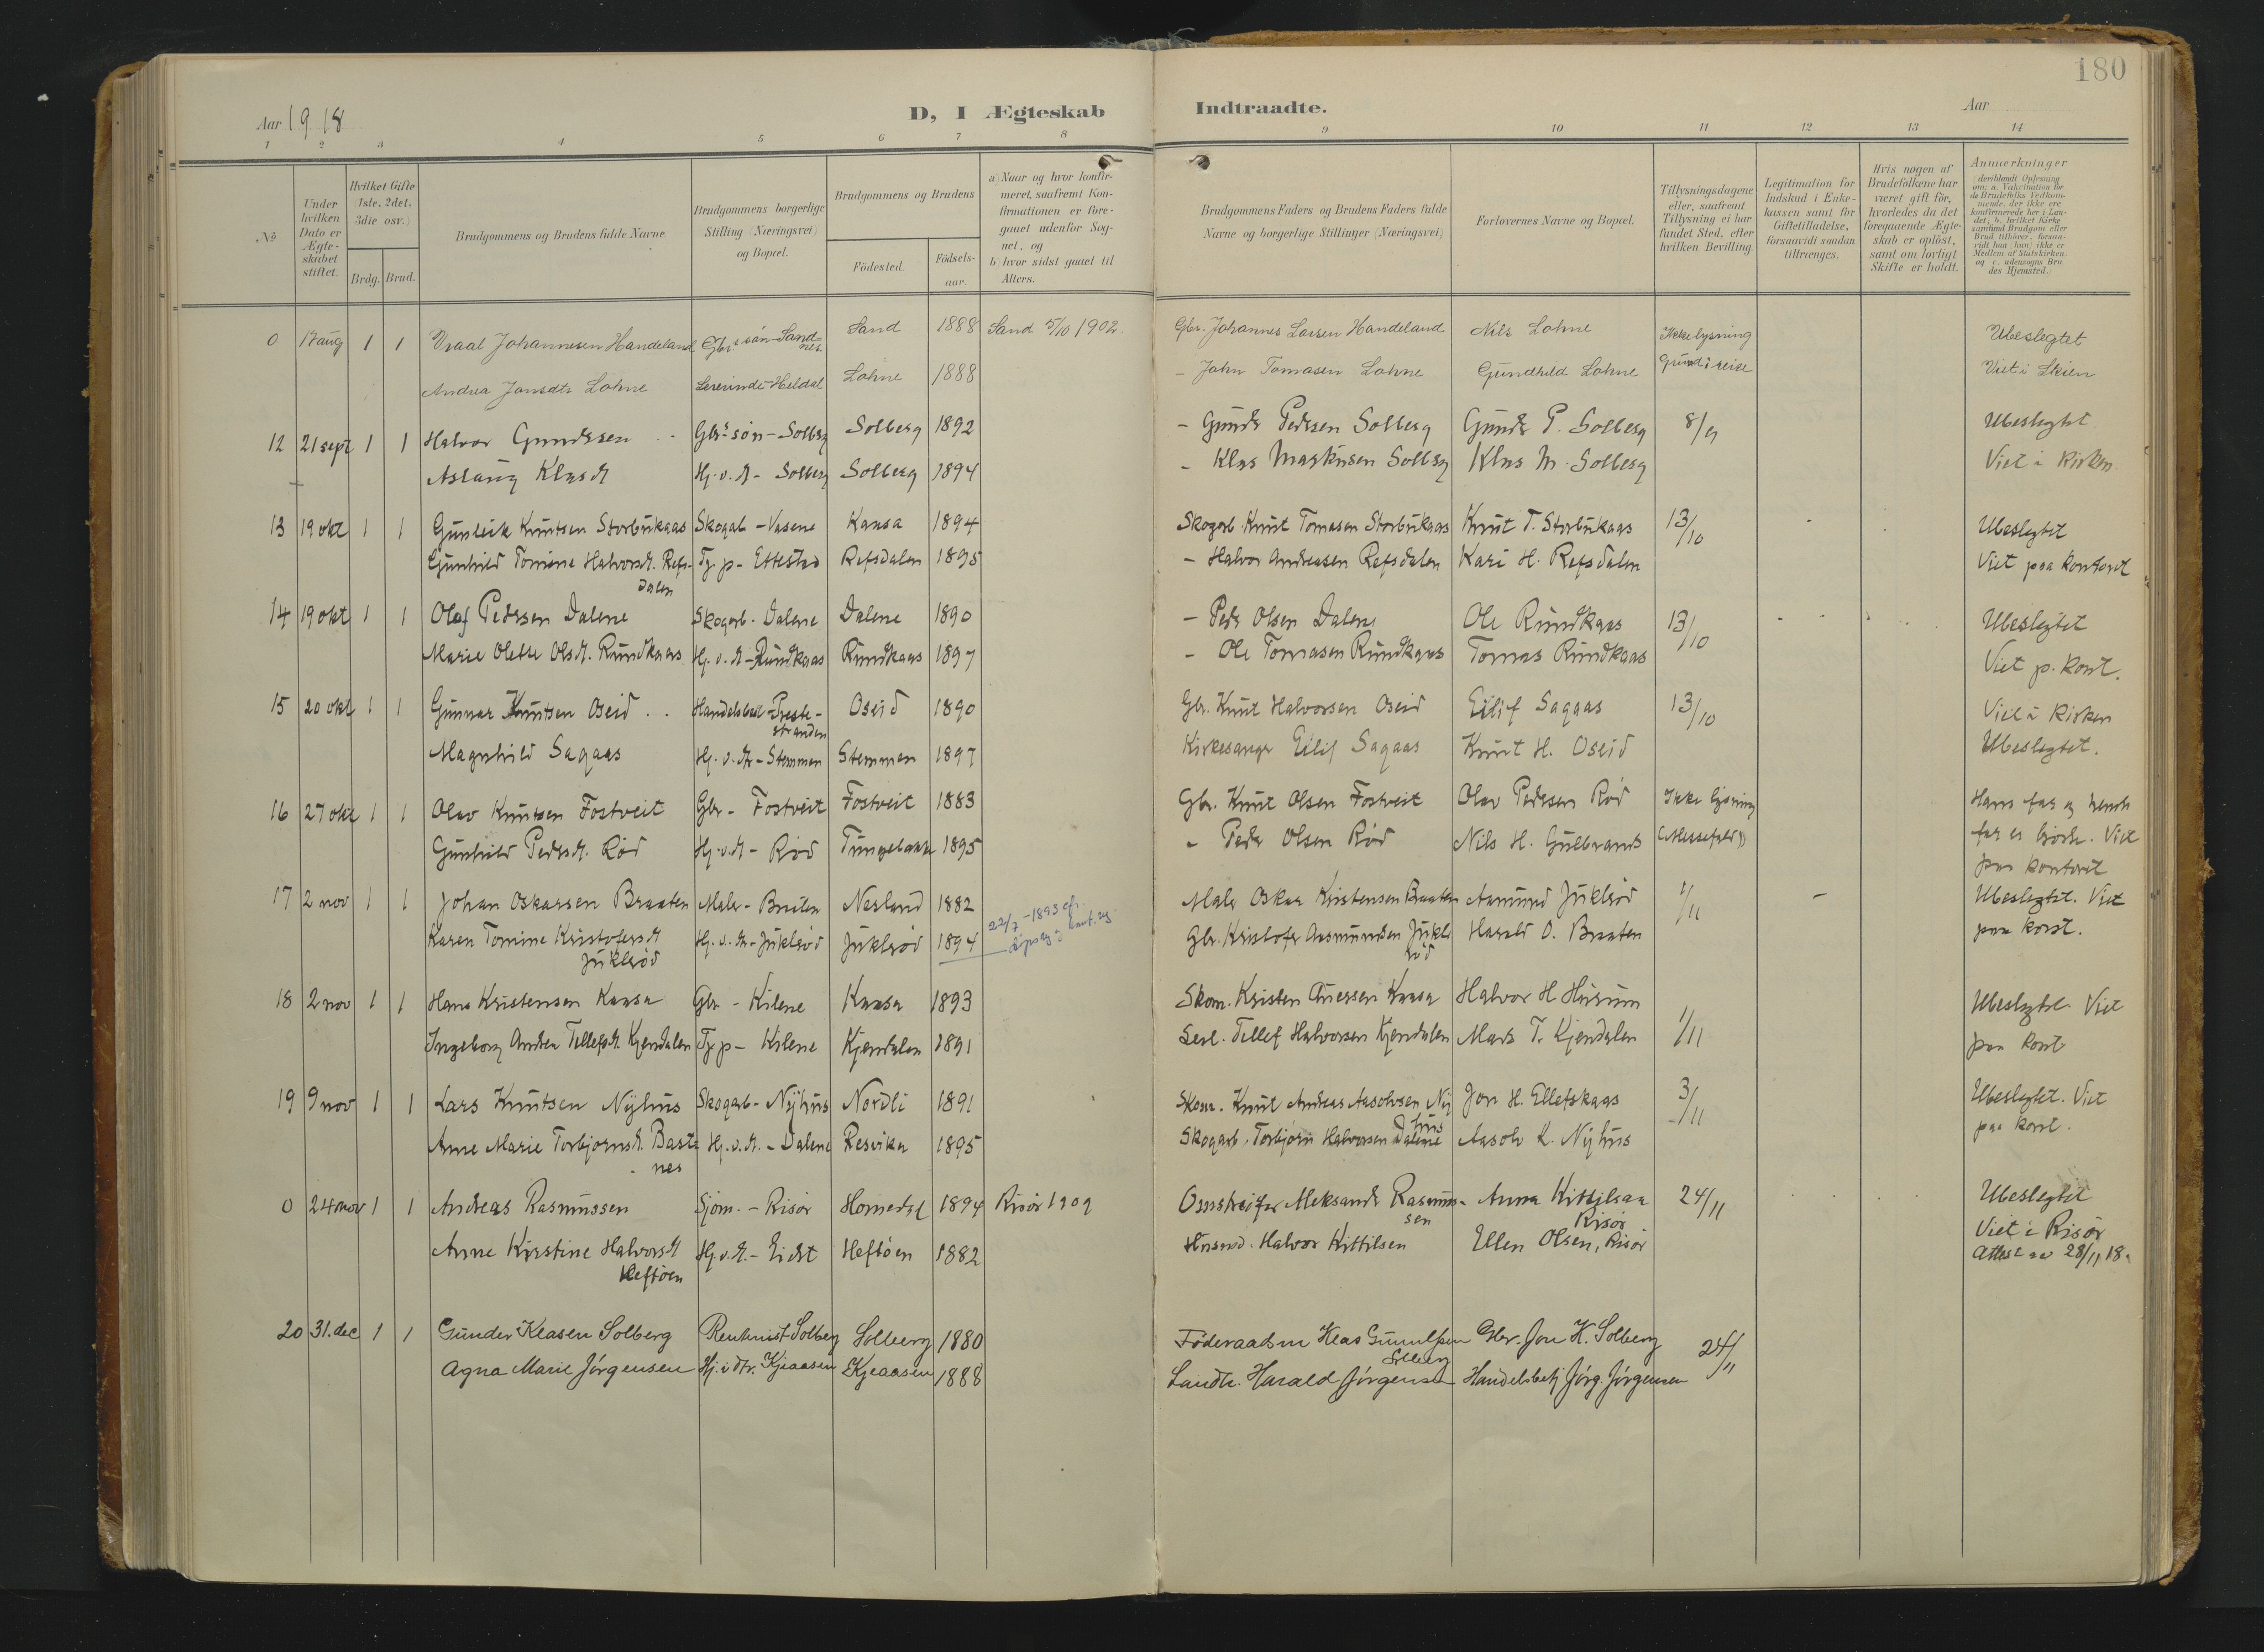 180
Aar 1918
D, I Ægteskab Indtraadte.
Aar
1 2 3 4 5 6 7 8 9 10 11 12 13 14
No.
Under hvilken Dato er Ægteskabet stiftet.
Hvilket Gifte (1ste, 2det, 3die osv.)
Brdg. Brud.
Brudgommens og Brudens fulde Navne.
Brudgommens borgerlige Stilling (Næringsvei) og Bopæl.
Brudgommens og Brudens
Fødested.
Fødselsaar.
a) Naar og hvor konfirmeret, saafremt Konfirmationen er foregaaet udenfor Sognet, og
b) hvor sidst gaaet til Alters.
Brudgommens Faders og Brudens Faders fulde Navne og borgerlige Stillinger (Næringsvei)
Forlovernes Navne og Bopæl.
Tillysningsdagene eller, saafremt Tillysning ei har fundet Sted, efter hvilken Bevilling.
Legitimation for Indskud i Enkekassen samt for Giftetilladelse, forsaavidt saadan tiltrænges.
Hvis nogen af Brudefolkene har været gift før, hvorledes da det foregaaende Ægteskab er opløst, samt om lovligt Skifte er holdt.
Anmerkninger
(deriblandt Oplysning om: a. Vakcination for de Brudefolks Vedkommende, der ikke ere konfirmerede her i Landet; b. hvilket Kirkesamfund Brudgom eller Brud tilhører, forsaavidt han (hun) ikke er Medlem af Statskirken og c. udensogns Brudes Hjemsted.)
0 aug 1 1 Johannesen Handeland Gbrs søn - Sandnes Sand 1888 Sand 5/10 1902. Gbr. Johannes Larsen Handeland Nils Lohne Ikke lysning Ubeslegtet
Andrea Jonsdtr Lohne Lererinde - Heldal Lohne 1888 - John Tomasen Lohne Gundhild Lohne Grund: reise Viet i Skien
12 21 sept 1 1 Halvor Gundersen Gbrs søn - Solberg Solberg 1892 - Gunder Pedersen Solberg Gunder P. Solberg 8/9 Ubeslegtet
Aslaug Klasdt Hj. v. dt - Solberg Solberg 1894 - Klas Markusen Solberg Klas M. Solberg Viet i kirken
13 19 okt 1 1 Gunleik Knutsen Storbukaas Skogarb - Vasene Kaasa 1894 Skogarb. Knut Tomasen Storbukaas Knut T. Storbukaas 13/10 Ubeslegtet
Gunhild Tomine Halvorsdt. Refsdalen Tj. p - Ettestad Refsdalen 1895 - Halvor Andreasen Refsdalen Kari H. Refsdalen Viet paa kontoret
14 19 okt 1 1 Olaf Pedersen Dalene Skogarb - Dalene Dalene 1890 - Peder Olsen Dalene Ole Rundkaas 13/10 Ubeslegtet
Marie Olette Olsdt. Rundkaas Hj. v. dt - Rundkaas Rundkaas 1897 - Ole Tomasen Rundkaas Tomas Rundkaas Viet p. kont.
15 20 okt 1 1 Gunnar Knutsen Oseid Handelsbest - Prestestranden Oseid 1890 Gbr. Knut Halvorsen Oseid Eilif Sagaas 13/10 Viet i kirken
Magnhild Sagaas Hj. v. dtr - Stemmen Stemmen 1897 Kirkesanger Eilif Sagaas Knut H. Oseid Ubeslegtet.
16 27 okt 1 1 Olav Knutsen Fostveit Gbr - Fostveit Fostveit 1883 Gbr. Knut Olsen Fostveit Olav Pedersen Rød Ikke lysning Hans far og hendes
Gunhild Pedersdt. Rød Hj. v. dt - Rød Tungebakke 1895 - Peder Olsen Rød Nils H. Gulbrands (Messefald) far er Viet
paa kontoret
17 2 nov 1 1 Johan Oskarsen Braaten Maler - Braaten Nesland 1882 Maler Oskar Kristensen Braaten Aamund Juklerød 1/11 - Ubeslegtet. Viet
22/7 - 1893 cfr.
Karen Tomine Kristofersdt Juklerød Hj. v. dtr - Juklerød Juklerød 1894 Gbr. Kristofer Aasmundsen Juklerød Harald O. Braaten paa kont.
18 2 nov 1 1 Hans Kristensen Kaasa Gbr - Kilene Kaasa 1893 Skom. Kristen Kaasa Halvor H Husum 1/11 Ubeslegtet Viet
Ingeborg Andrea Tellefsdt. Kjendalen Tj. p - Kilene Kjendalen 1891 Tellef Halvorsen Kjendalen T. Kjendalen paa kont.
19 9 nov 1 1 Lars Knutsen Nyhus Skogarb - Nyhus Nordli 1891 Skom. Knut Andreas Aasolvsen Nyhus Jon H. Ellefskaas 3/11 Ubeslegtet. Viet
Anne Marie Torbjørnsdt. Bastnes Hj. v. dt. - Dalene Resvika 1895 Skogarb. Torbjørn Halvorsen Dalene Aasolv K. Nyhus paa kont.
0 24 nov 1 1 Andreas Rasmussen Sjøm. - Risør 1894 Risør 1909 Omstreifer Aleksander Rasmussen Anna Kittilsen Risør 24/11 Ubeslegtet
Viet i Risør
Anne Kirstine Halvorsdt Heftøen Hj. v. dt. - Eidet Heftøen 1882 Husmd. Halvor Kittilsen Ellen Olsen, Risør Attest av 28/11 18.
20 31. dec 1 1 Gunder Klasen Solberg Solberg Solberg 1880 Føderaadsm Klas Solberg Gbr. Jon K. Solberg 24/11
Agna Marie Jørgensen Hj. v. dtr. Kjeaasen Kjeaasen 1888 Landh. Harald Jørgensen Handelsbetj Jørg. Jørgensen